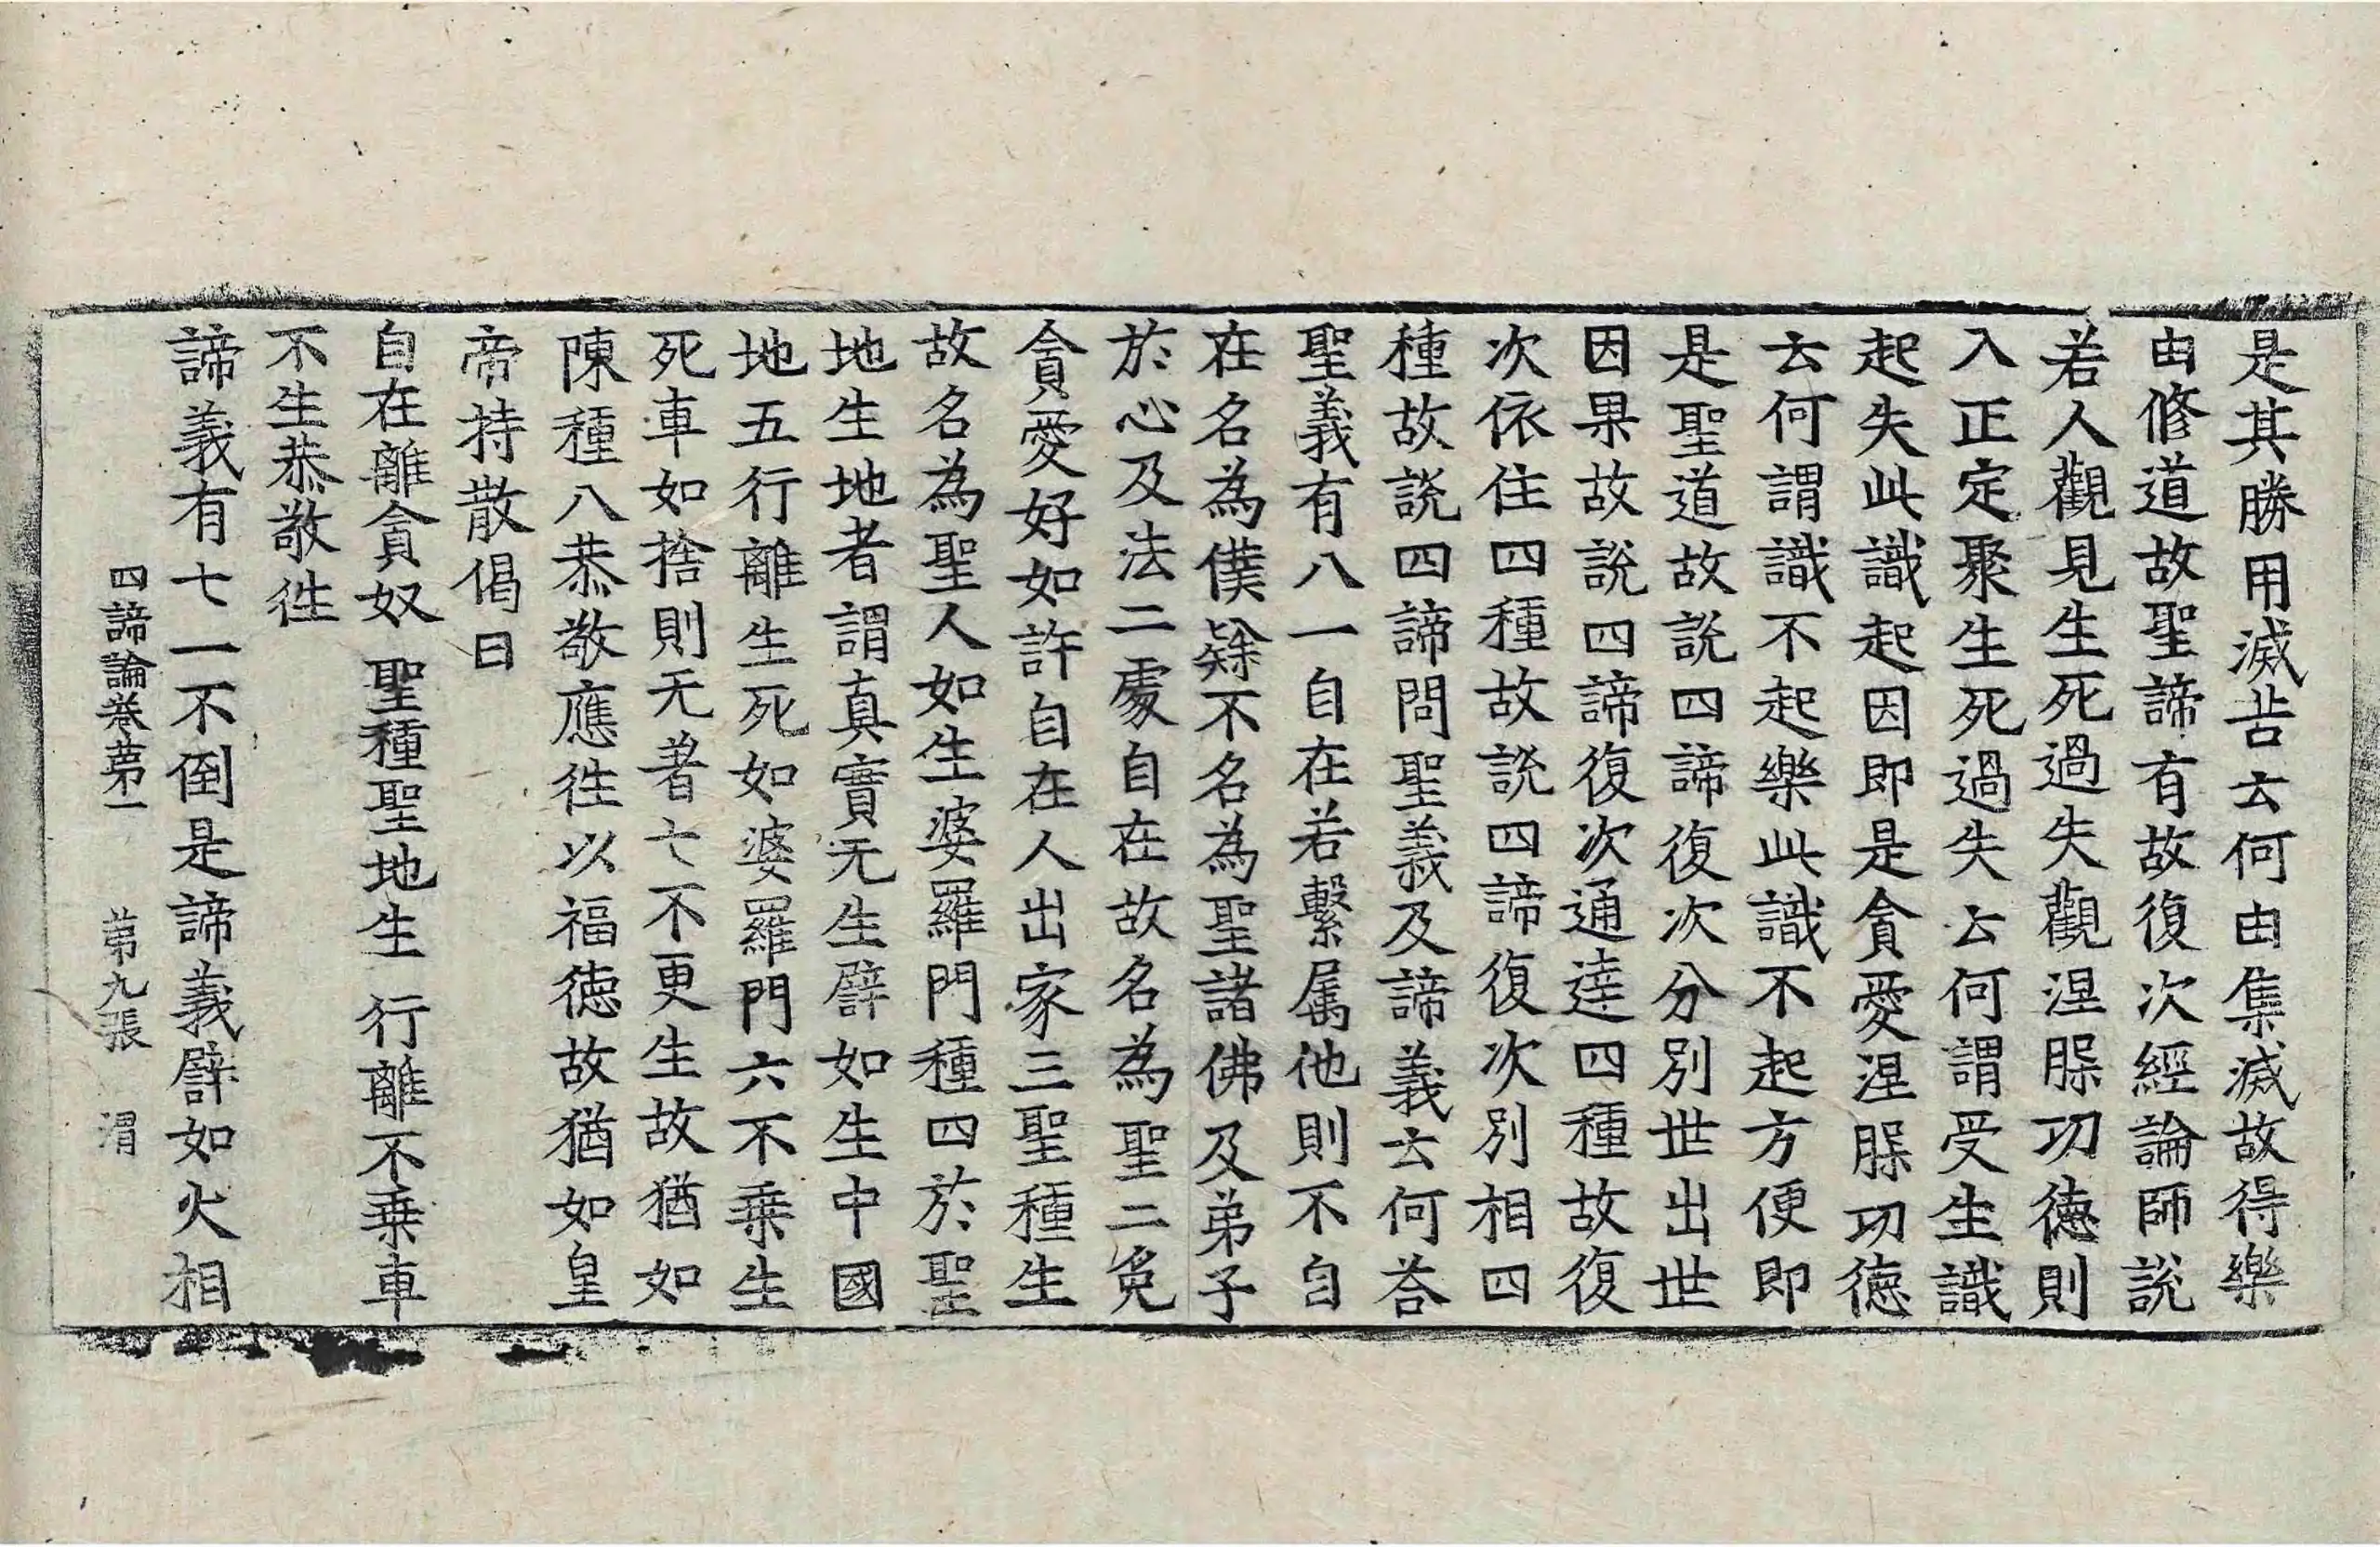 是其勝用滅苦云何由集滅故得樂
由修道故聖諦有故復次經論師説
若人觀見生死過失觀涅槃功德則
入正定聚生死過失云何謂受生識
起失此識起因即是貪愛涅槃功德
云何謂識不起樂此識不起方便即
是聖道故説四諦復次分別世出世
因果故説四諦復次通達四種故復
次依住四種故説四諦復次別相四
種故説四諦問聖義及諦義云何荅
聖義有八一自在若繫属他則不自
在名為僕𨽻不名為聖諸佛及弟子
於心及法二處自在故名為聖二免
貪愛好如許自在人出家三聖種生
故名為聖人如生婆羅門種四於聖
地生地者謂真實无生譬如生中國
地五行離生死如婆羅門六不乗生
死車如捨則无著七不更生故猶如
陳種八恭敬應徃以福德故猶如皇
帝持散偈曰
自在離貪奴　聖種聖地生　行離不乗車
不生恭敬徃
諦義有七一不倒是諦義譬如火相
四諦論卷苐一　苐九張　渭